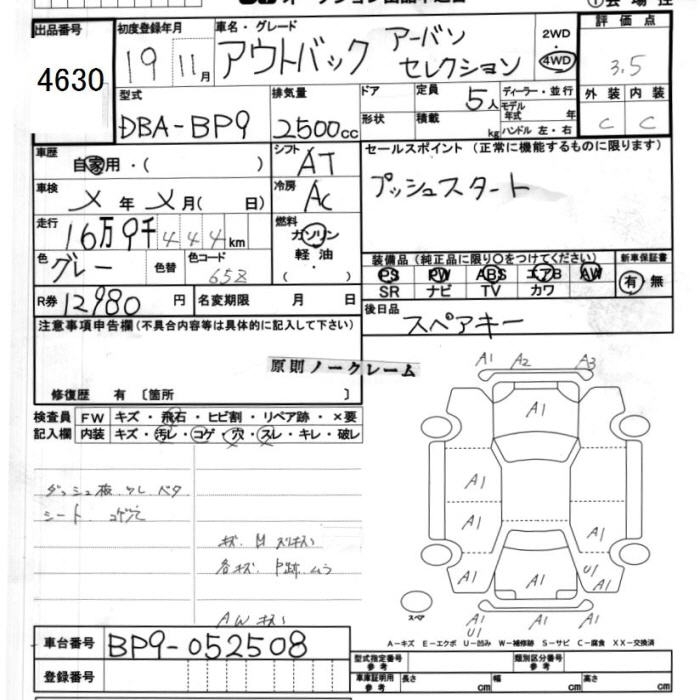 出品番号
4630
初度登録年月
19 11月
車名・グレード
アウトバック アーバン
セレクション
2WD
4WD
評価点
3.5
外装 内装
C C
型式
DBA-BP9
排気量
2500cc
ドア
形状
定員 5人
積載 kg
ディーラー・並行
モデル
年式 年
ハンドル 左・右
車歴
自家用・( )
シフト
AT
セールスポイント (正常に機能するものに限ります)
プッシュスタート
車検
メ 年 メ 月( 日)
冷房
AC
走行
16万9千444km
燃料
ガソリン
軽油
( ・ )
色
グレー
色替
色コード
65Z
装備品 (純正品に限り○をつけてください)
PS PW ABS エアB AW
SR ナビ TV カワ
新車保証書
有・無
R券 12980円
名変期限 月 日
後日品
スペアキー
注意事項申告欄(不具合内容等は具体的に記入して下さい)
原則ノークレーム
修復歴 有〔箇所 〕
検査員
記入欄
FW キズ・飛石・ヒビ割・リペア跡・×要
内装 キズ・汚レ・コゲ・穴・スレ・キレ・破レ
シート
AWキズ
A1 A2 A3
A1
A1
A1
A1
A1
A1
U1
A1
A1
A1
U1
スペア
A-キズ E-エクボ U-凹み W-補修跡 S-サビ C-腐食 XX-交換済
車台番号 BP9-052508
登録番号
型式指定番号
参考
類別区分番号
参考
車庫証明用
参考
長さ cm
幅 cm
高さ cm